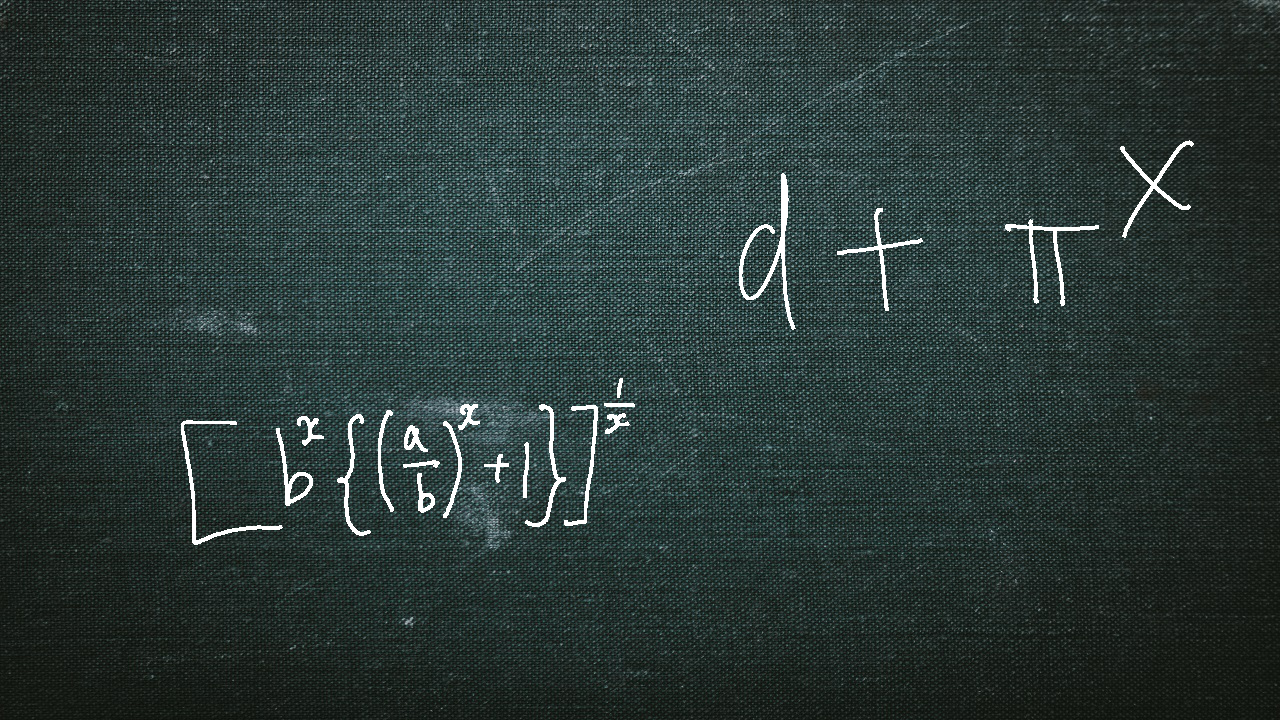 d + π^x
[b^x{(a/b)^x + 1}]^(1/x)